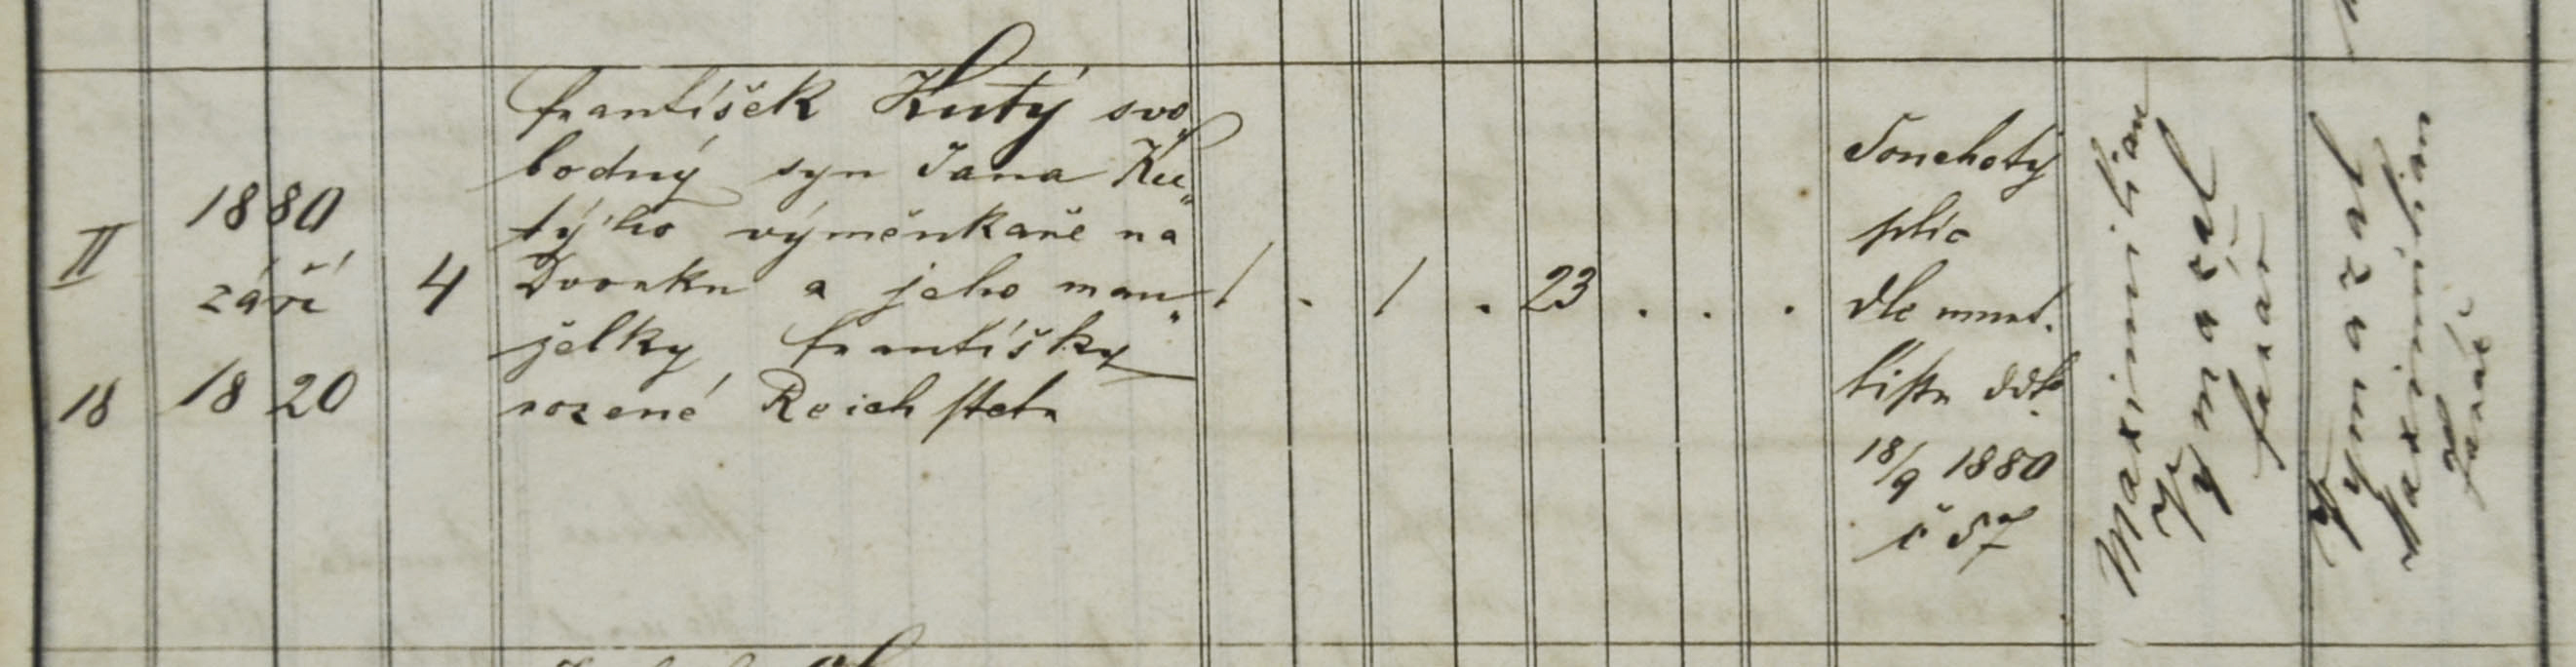 II
18
1880
září
18 20
4
František Kutý svo„
bodný syn Jana Ku„
týho výměnkaře na
Dvorku a jeho man„
želky Františky
rozené Reichstetr
1 . 1 . 23 . . .
Souchotiny
plic
dle umrt.
listu ddto
18/9 1880
č 57
Maximilian
Vymazal
farář
Vymazal
Maximilian
farář